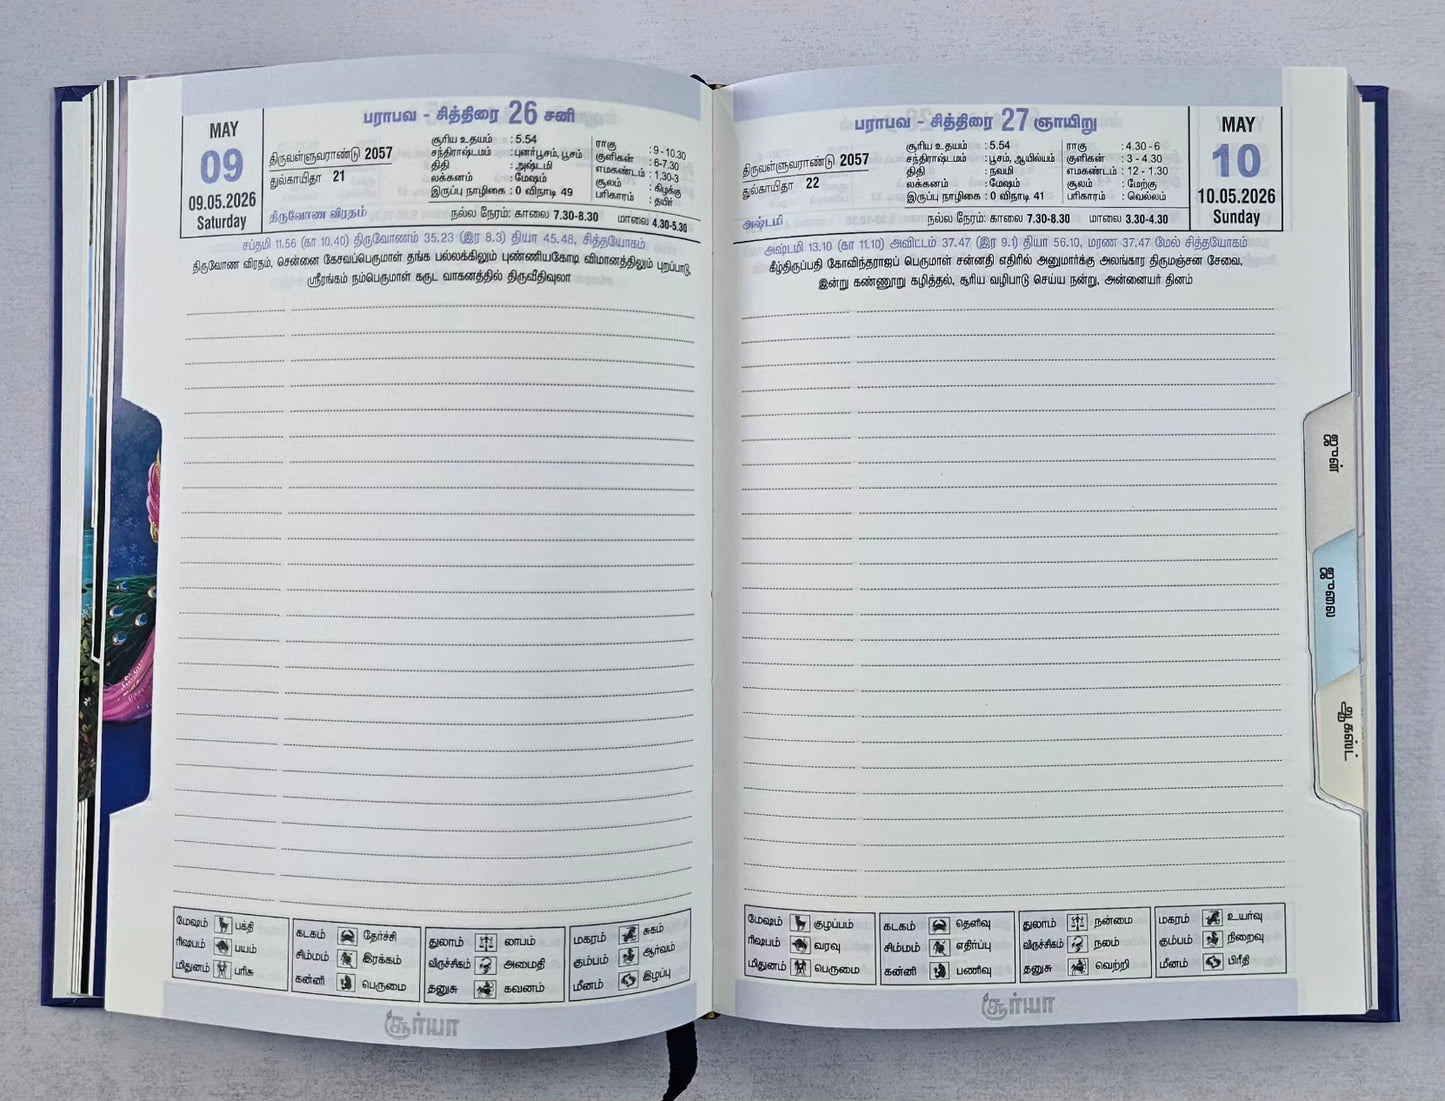 MAY
09
09.05.2026
Saturday
பராபவ - சித்திரை 26 சனி
திருவள்ளுவராண்டு 2057
துல்காயிதா 21
சூரிய உதயம் : 5.54
சந்திராஷ்டமம் : புனர்பூசம், பூசம்
திதி : அஷ்டமி
லக்கனம் : மேஷம்
இருப்பு நாழிகை : 0 விநாடி 49
ராகு : 9 - 10.30
குளிகன் : 6-7.30
எமகண்டம் : 1.30-3
சூலம் : கிழக்கு
பரிகாரம் : தயிர்
திருவோண விரதம்
நல்ல நேரம்: காலை 7.30-8.30 மாலை 4.30-5.30
சப்தமி 11.56 (கா 10.40) திருவோணம் 35.23 (இர 8.3) தியா 45.48, சித்தயோகம்
திருவோண விரதம், சென்னை கேசவப்பெருமாள் தங்க பல்லக்கிலும் புண்ணியகோடி விமானத்திலும் புறப்பாடு,
ஸ்ரீரங்கம் நம்பெருமாள் கருட வாகனத்தில் திருவீதிவுலா
மேஷம் பக்தி
ரிஷபம் பயம்
மிதுனம் பரிசு
கடகம் தேர்ச்சி
சிம்மம் இரக்கம்
கன்னி பெருமை
துலாம் லாபம்
விருச்சிகம் அமைதி
தனுசு கவனம்
மகரம் சுகம்
கும்பம் ஆர்வம்
மீனம் இழப்பு
சூர்யா
பராபவ - சித்திரை 27 ஞாயிறு
திருவள்ளுவராண்டு 2057
துல்காயிதா 22
சூரிய உதயம் : 5.54
சந்திராஷ்டமம் : பூசம், ஆயில்யம்
திதி : நவமி
லக்கனம் : மேஷம்
இருப்பு நாழிகை : 0 விநாடி 41
ராகு : 4.30 - 6
குளிகன் : 3 - 4.30
எமகண்டம் : 12 - 1.30
சூலம் : மேற்கு
பரிகாரம் : வெல்லம்
MAY
10
10.05.2026
Sunday
அஷ்டமி
நல்ல நேரம்: காலை 7.30-8.30 மாலை 3.30-4.30
அஷ்டமி 13.10 (கா 11.10) அவிட்டம் 37.47 (இர 9.1) தியா 56.10, மரண 37.47 மேல் சித்தயோகம்
கீழ்திருப்பதி கோவிந்தராஜப் பெருமாள் சன்னதி எதிரில் அனுமார்க்கு அலங்கார திருமஞ்சன சேவை,
இன்று கண்ணூறு கழித்தல், சூரிய வழிபாடு செய்ய நன்று, அன்னையர் தினம்
ஜூன்
ஜூலை
ஆகஸ்ட்
மேஷம் குழப்பம்
ரிஷபம் வரவு
மிதுனம் பெருமை
கடகம் தெளிவு
சிம்மம் எதிர்ப்பு
கன்னி பணிவு
துலாம் நன்மை
விருச்சிகம் நலம்
தனுசு வெற்றி
மகரம் உயர்வு
கும்பம் நிறைவு
மீனம் பிரீதி
சூர்யா